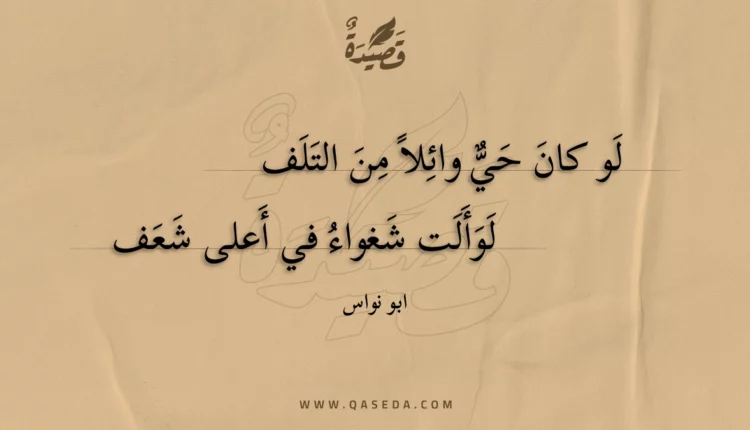 قَصِيدَةٌ
لَو كانَ حَيٌّ وائِلاً مِنَ التَلَف
لَوَأَلَت شَغواءُ في أَعلى شَعَف
ابو نواس
WWW.QASEDA.COM